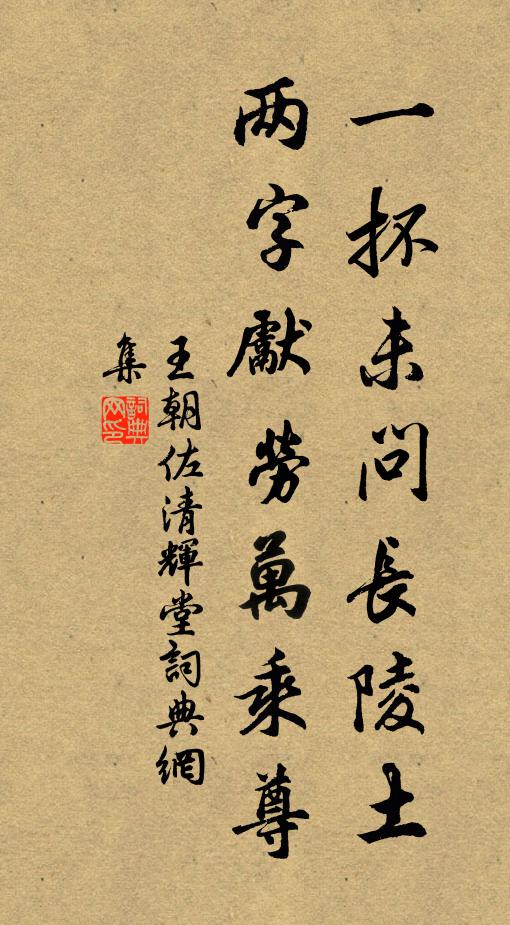 一抔未問長陵土
两字獻勞萬乘尊
王朝佐清輝堂詞典網
集
詞典
网印